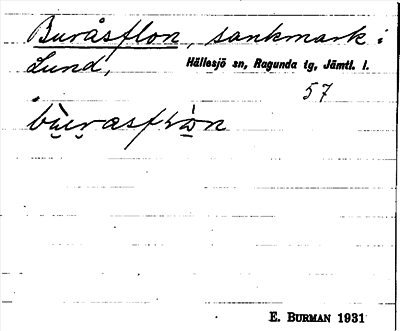 Buråsflon, sankmark i
Lund, Hällesjö sn, Ragunda tg, Jämtl. l.
57
E. BURMAN 1931